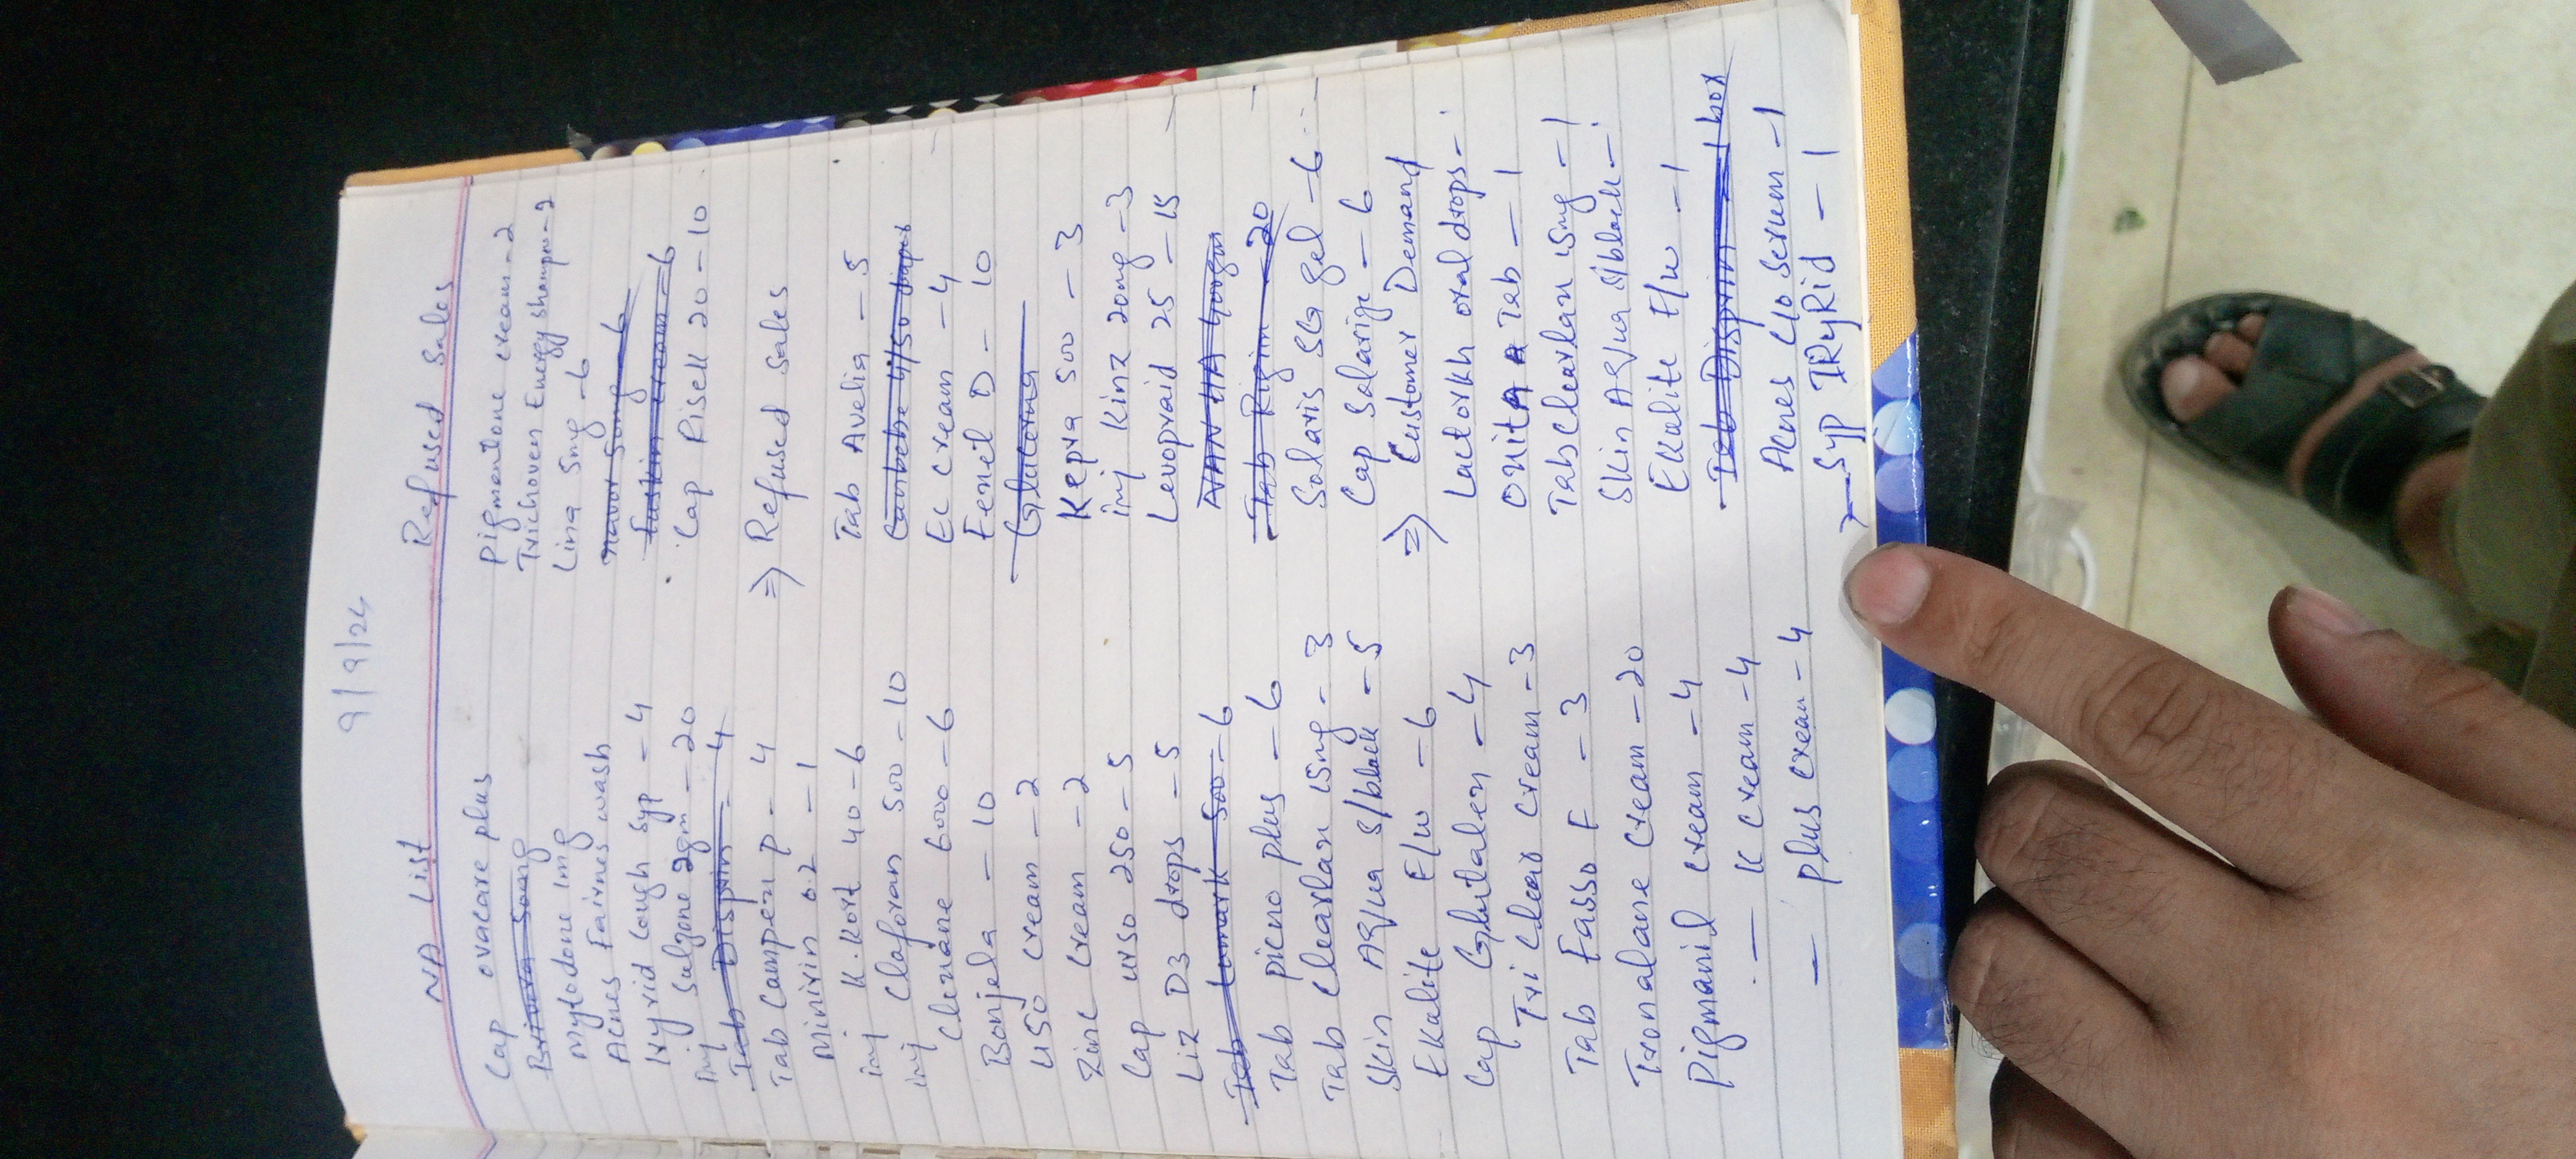 9/9/24
NA List
Cap ovacare plus
Mytodone 1mg
Acnes Fairnes wash
Ivyrid Cough Syp - 4
inj Sulzone 2gm - 20
Tab Disprin - 4
Tab Campex P - 4
Minirin 0.2 - 1
inj K.Kort 40 - 6
inj Claforan 500 - 10
Clexane 6000 - 6
Bonjela - 10
USO cream - 2
Zinc Cream - 2
Cap urso 250 - 5
Liz D3 drops - 5
Tab 500 - 6
Tab picno plus - 6
Tab Clearlan 15mg - 3
Skin Aqua s/black - 5
Ekalite F/w - 6
Cap Glutalen - 4
Tri Clear Cream - 3
Tab Fasso F - 3
Tronalane Cream - 20
Pigmanid cream - 4
— K cream - 4
— plus cream - 4
Refused Sales
Pigmentone cream - 2
Trichoven Energy Shampo - 2
Lina 5mg - 6
Fuskin cream - 6
Cap Risek 20 - 10
⇒ Refused Sales
Tab Avelia - 5
EC cream - 4
Fexet D - 10
Glucerna
Kepra 500 - 3
inj Kinz 20mg - 3
Levopraid 25 - 15
NAN HA 400gm
Tab Rigix - 20
Solaris SG gel - 6
Cap Salarize - 6
⇒ Customer Demand
Lactorkh oral drops -
ONITA A Tab - 1
Tab Clearlan 15mg - 1
Skin Aqua s/black - 1
Ekalite F/w - 1
Tab Disprin - 1 box
Acnes C10 Serum - 1
Syp IRyRid - 1